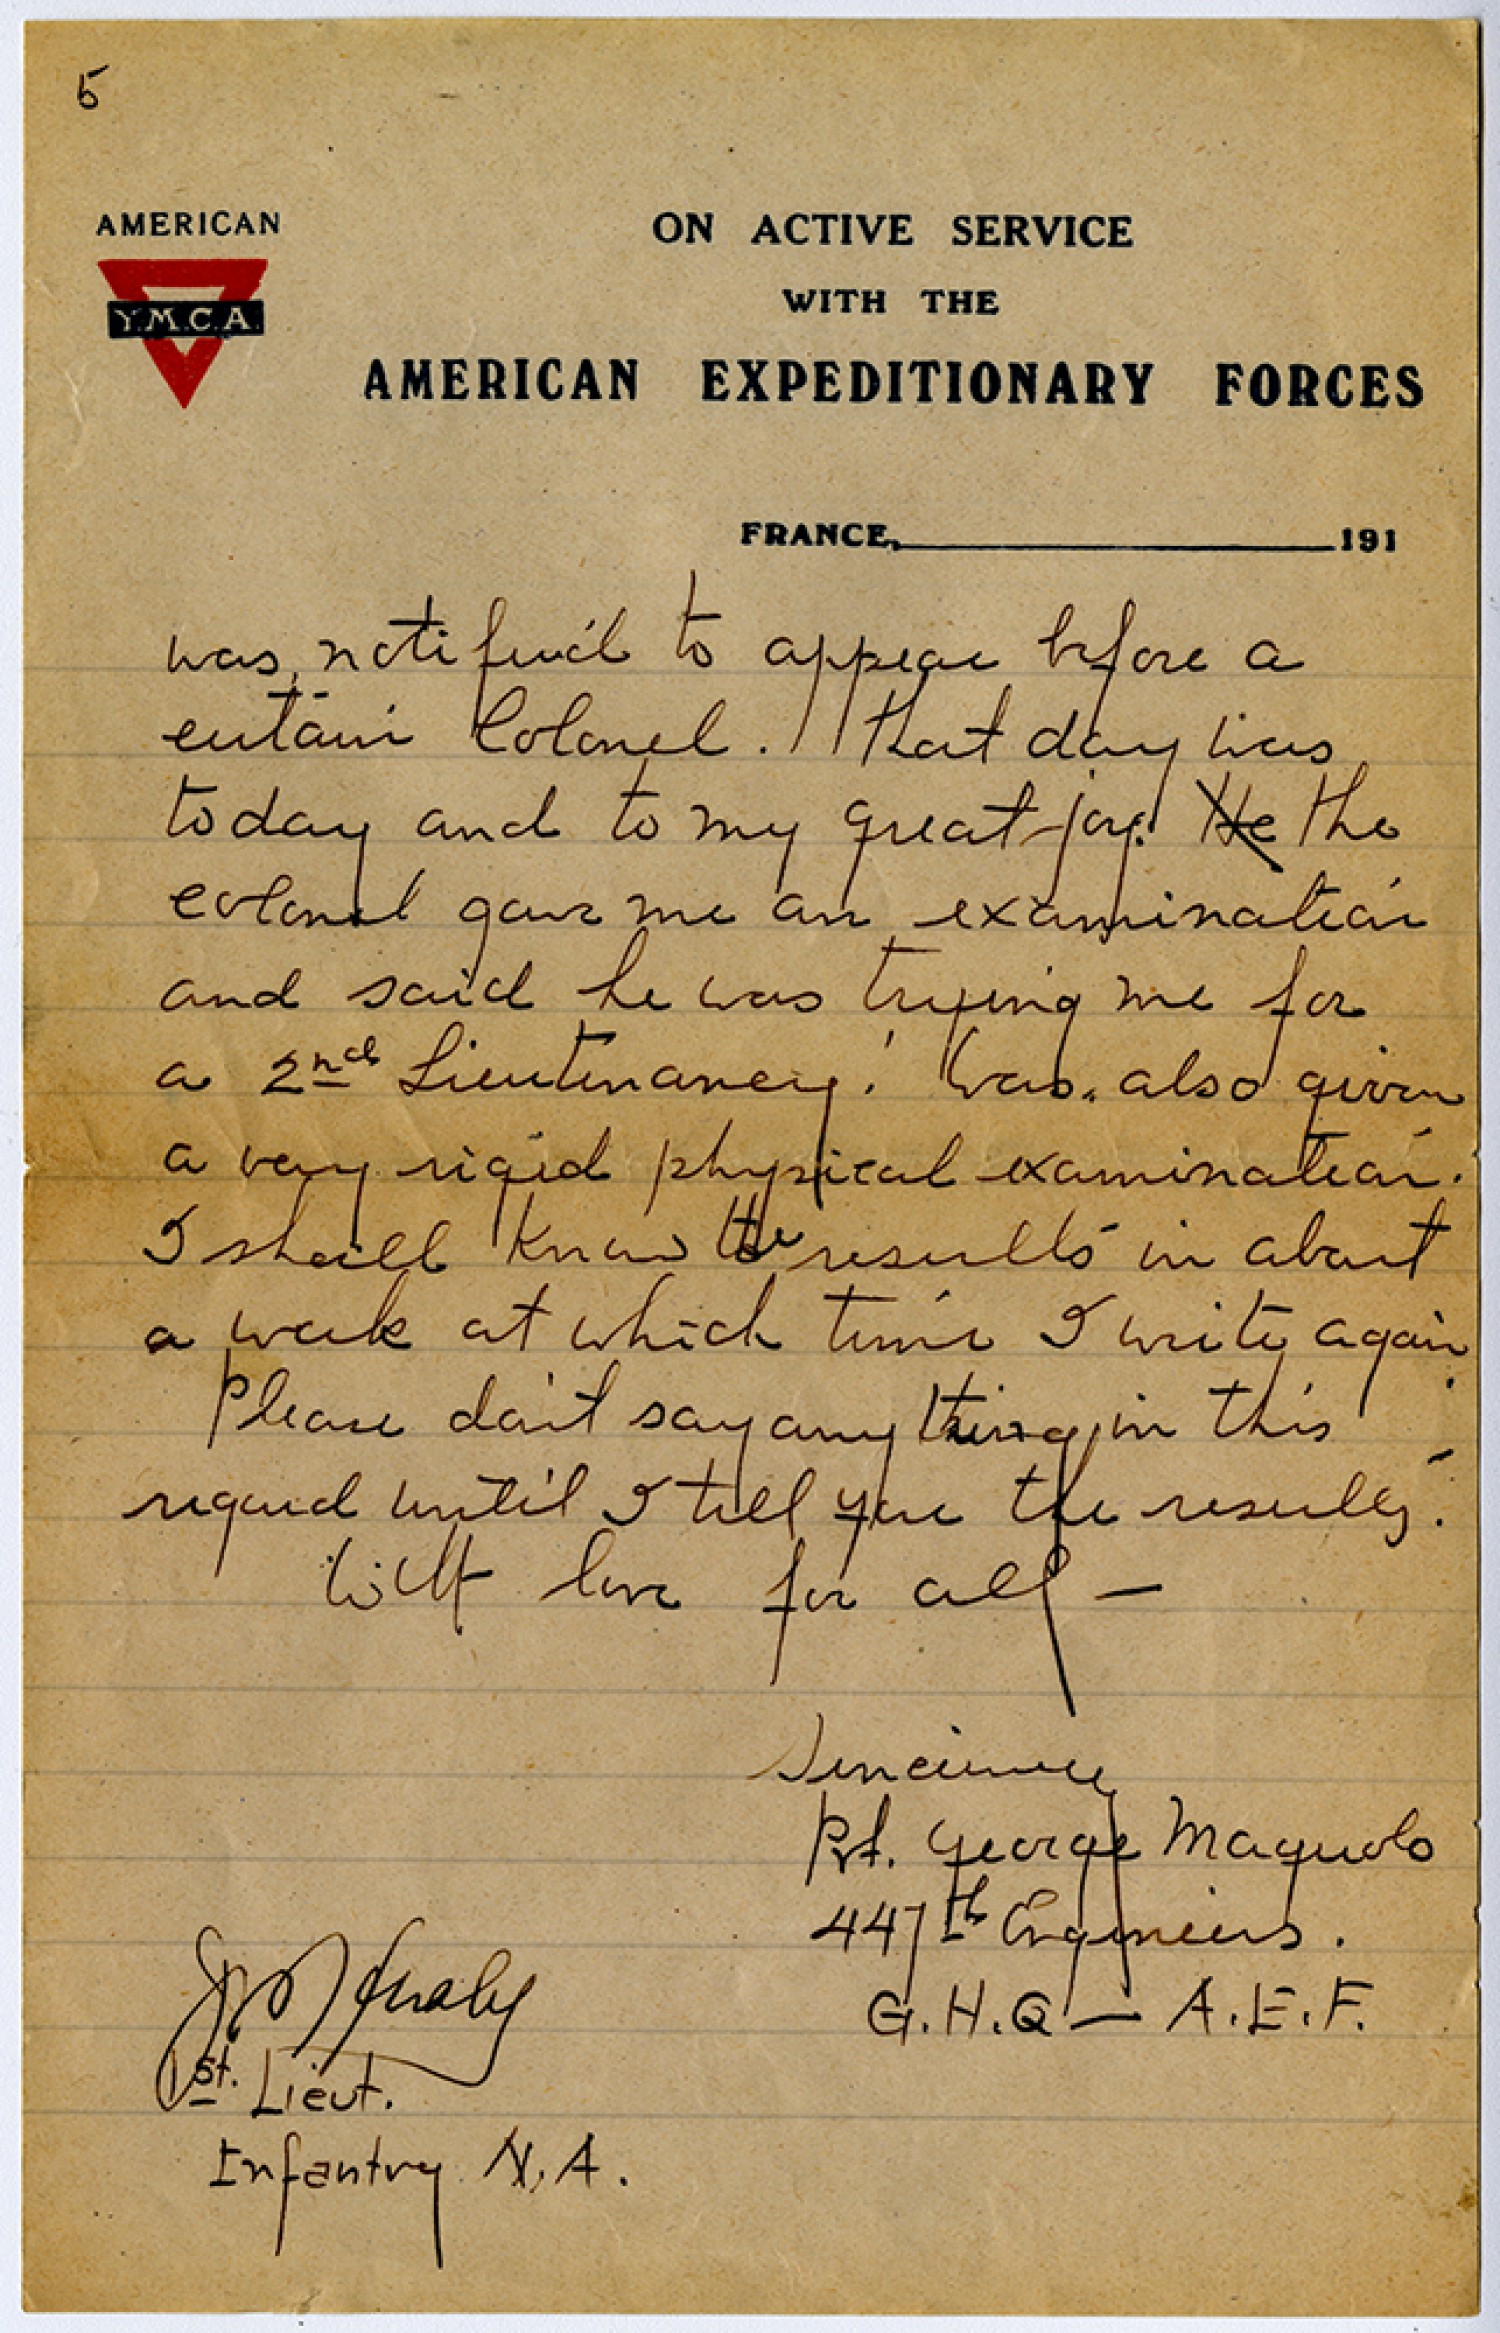 5
AMERICAN
Y.M.C.A.
ON ACTIVE SERVICE
WITH THE
AMERICAN EXPEDITIONARY FORCES
FRANCE, 191
was notified to appear before a
certain Colonel. That day was
today and to my great joy! He the
colonel gave me an examination
and said he was trying me for
a 2nd Lieutenancy! Was also given
a very rigid physical examination.
I shall know the results in about
a week at which time I write again.
Please don't say anything in this
regard until I tell you the results.
With love for all —
Sincerely
Pvt. George Maguolo
447th Engineers.
G.H.Q — A.E.F.
1st. Lieut.
Infantry N.A.